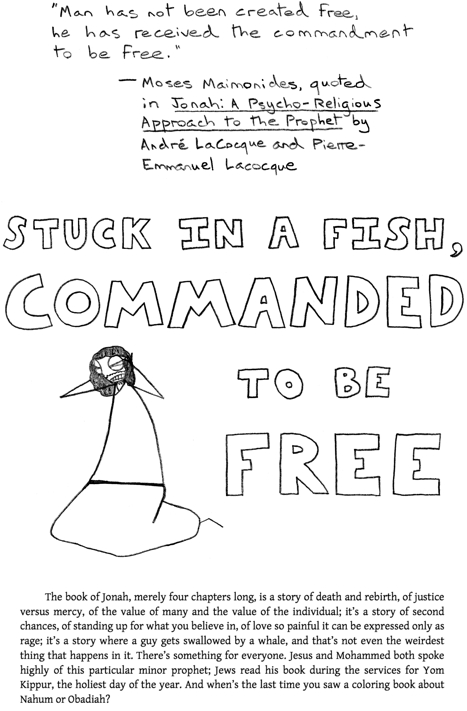 "Man has not been created free,
he has received the commandment
to be free."
— Moses Maimonides, quoted
in Jonah: A Psycho-Religious
Approach to the Prophet by
André LaCocque and Pierre-
Emmanuel Lacocque
STUCK IN A FISH,
COMMANDED
TO BE
FREE
The book of Jonah, merely four chapters long, is a story of death and rebirth, of justice
versus mercy, of the value of many and the value of the individual; it's a story of second
chances, of standing up for what you believe in, of love so painful it can be expressed only as
rage; it's a story where a guy gets swallowed by a whale, and that's not even the weirdest
thing that happens in it. There's something for everyone. Jesus and Mohammed both spoke
highly of this particular minor prophet; Jews read his book during the services for Yom
Kippur, the holiest day of the year. And when's the last time you saw a coloring book about
Nahum or Obadiah?